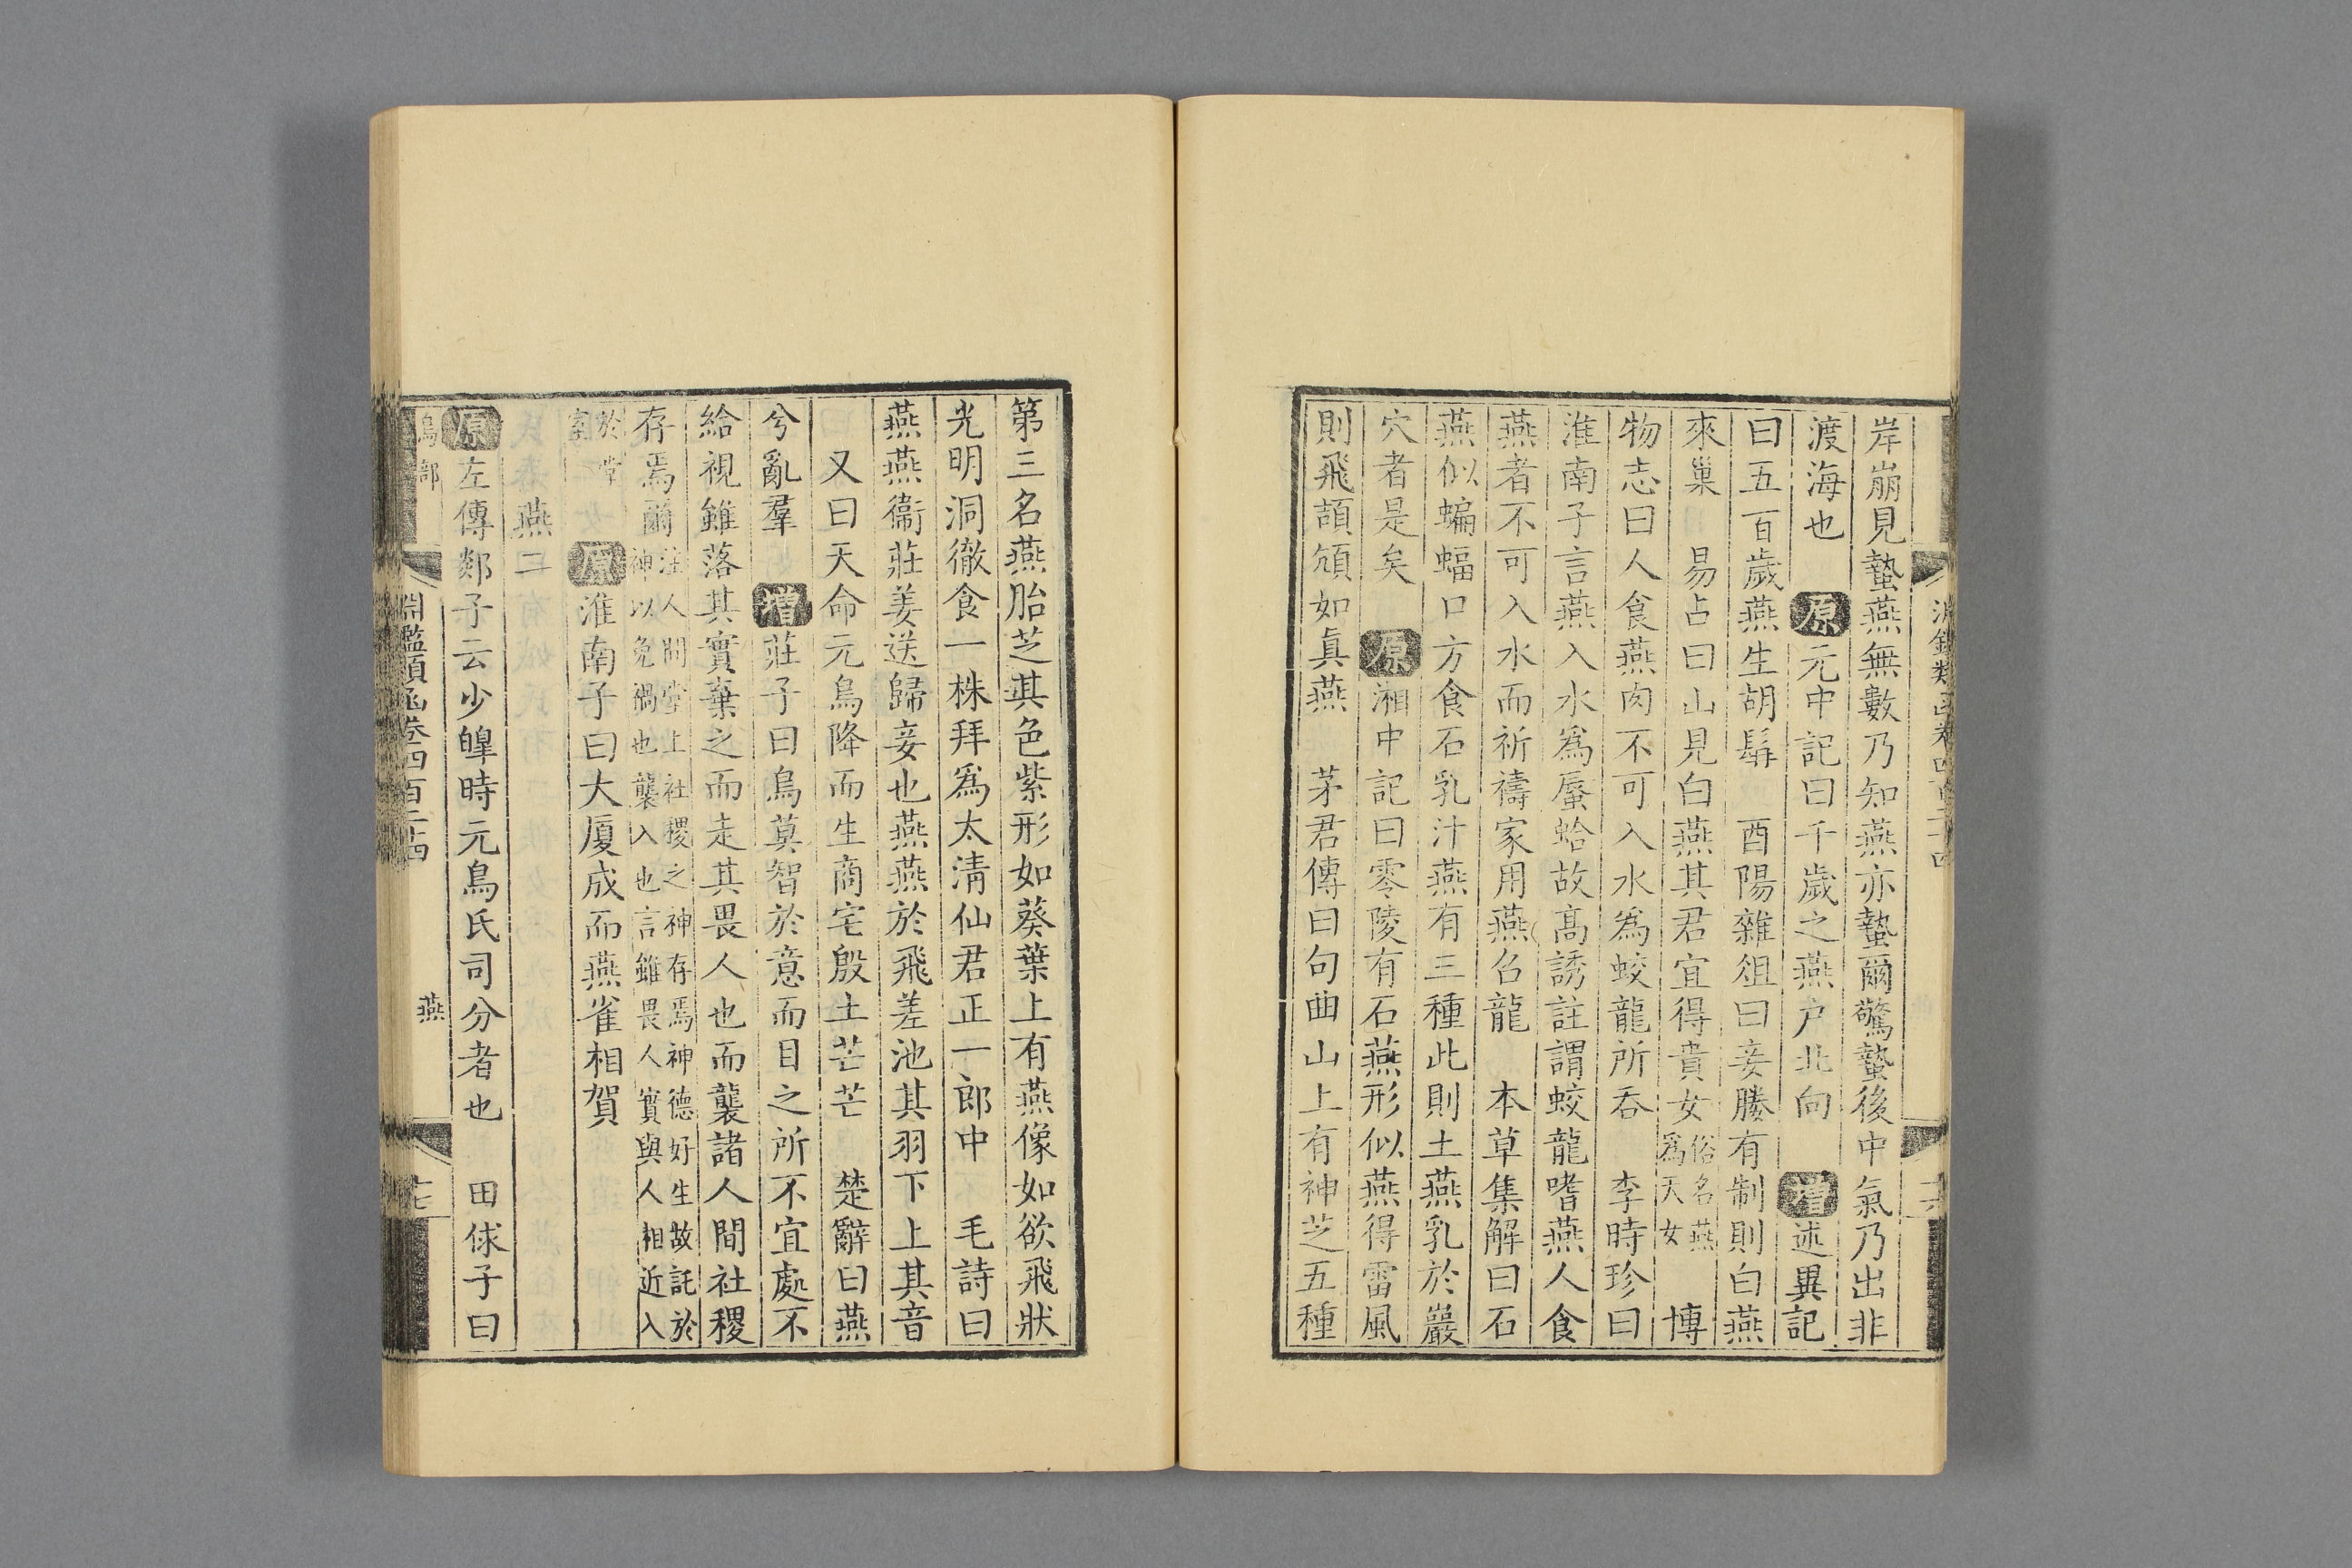 岸崩見蟄燕無數乃知燕亦蟄爾驚蟄後中氣乃出非
渡海也　原元中記曰千歲之燕户北向　增述異記
曰五百歲燕生胡髯　酉陽雜俎曰妾媵有制則白燕
來巢　易占曰山見白燕其君宜得貴女俗名燕爲天女　博
物志曰人食燕肉不可入水爲蛟龍所吞　李時珍曰
淮南子言燕入水爲蜃蛤故高誘註謂蛟龍嗜燕人食
燕者不可入水而祈禱家用燕召龍　本草集解曰石
燕似蝙蝠口方食石乳汁燕有三種此則土燕乳於巖
穴者是矣　原湘中記曰零陵有石燕形似燕得雷風
則飛頡頏如眞燕　茅君傳曰句曲山上有神芝五種
第三名燕胎芝其色紫形如葵葉上有燕像如欲飛狀
光明洞徹食一株拜爲太清仙君正一郎中　毛詩曰
燕燕衞莊姜送歸妾也燕燕於飛差池其羽下上其音
又曰天命元鳥降而生商宅殷土芒芒　楚辭曰燕
兮亂羣　增莊子曰鳥莫智於意而目之所不宜處不
給視雖落其實棄之而走其畏人也而襲諸人間社稷
存焉爾注人間堂上社稷之神存焉神德好生故託於
神以免禍也襲入也言雖畏人實與人相近入
於堂室　原淮南子曰大厦成而燕雀相賀
燕二
原左傳郯子云少皞時元鳥氏司分者也　田俅子曰
鳥部
淵鑑類函卷四百二十四
燕
十七